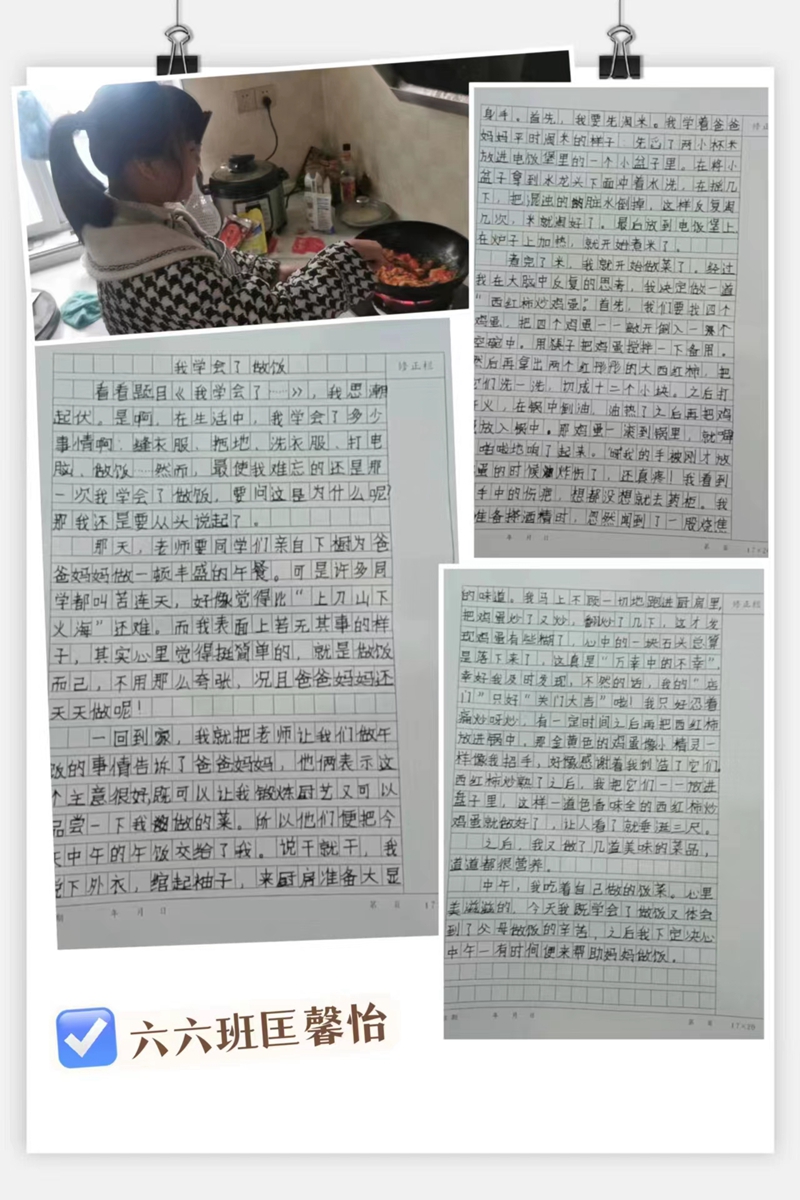 我学会了做饭
修正栏
看看题目《我学会了……》，我思潮
起伏。是啊，在生活中，我学会了多少
事情啊：缝衣服、拖地、洗衣服、打电
脑、做饭……然而，最使我难忘的还是那
一次我学会了做饭，要问这是为什么呢？
那我还是要从头说起了。
那天，老师要同学们亲自下橱为爸
爸妈妈做一顿丰盛的午餐。可是许多同
学都叫苦连天，好像觉得比“上刀山下
火海”还难。而我表面上若无其事的样
子，其实心里觉得挺简单的，就是做饭
而己，不用那么夸张，况且爸爸妈妈还
天天做呢！
一回到家，我就把老师让我们做午
饭的事情告诉了爸爸妈妈，他俩表示这
个主意很好，既可以让我锻炼厨艺又可以
品尝一下我做的菜。所以他们便把今
天中午的午饭交给了我。说干就干，我
脱下外衣，绾起袖子，来厨房准备大显
年 月 日
第 页
身手。首先，我要先淘米。我学着爸爸
修正
妈妈平时淘米的样子，先舀了两小杯米
放进电饭堡里的一个小盆子里。在将小
盆子拿到水龙头下面冲着水洗，在摇几
下，把混浊的脏水倒掉，这样反复淘
几次，米就淘好了。最后放到电饭堡上
在炉子上加热，就开始煮米了。
煮完了米，我就开始做菜了。经过
我在大脑中反复的思考，我决定做一道
“西红柿炒鸡蛋”。首先，我们要找四个
鸡蛋，把四个鸡蛋一一敲开倒入一个
空碗中。用筷子把鸡蛋搅拌一下备用。
然后再拿出两个红彤彤的大西红柿，把
它们洗一洗，切成十二个小块。之后打
开火，在锅中倒油，油热了之后再把鸡
蛋放入锅中。那鸡蛋一滚到锅里，就噼
啪啦地响了起来。“哎我的手被刚才放
蛋的时候炸伤了，还真疼！我看到
手中的伤疤，想都没想就去药柜。我
准备擦酒精时，忽然闻到了一股烧焦
年 月 日
第 页
17×20
的味道。我马上不顾一切地跑进厨房里，
修正栏
把鸡蛋炒了又炒，翻炒了几下，这才发
现鸡蛋有些糊了，心中的一块石头总算
是落下来了，这真是“万幸中的不幸”，
幸好我及时发现，不然的话，我的“店
门”只好“关门大吉”啦！我只好忍着
痛炒呀炒，有一定时间之后再把西红柿
放进锅中，那金黄色的鸡蛋像小精灵一
样像我招手，好像感谢着我创造了它们。
西红柿炒熟了之后，我把它们一一放进
盘子里，这样一道色香味全的西红柿炒
鸡蛋就做好了，让人看了就垂涎三尺。
之后，我又做了几道美味的菜品，
道道都很营养。
中午，我吃着自己做的饭菜。心里
美滋滋的，今天我既学会了做饭又体会
到了父母做饭的辛苦，之后我下定决心
中午一有时间便来帮助妈妈做饭。
年 月 日
第 页
17×20
六六班匡馨怡